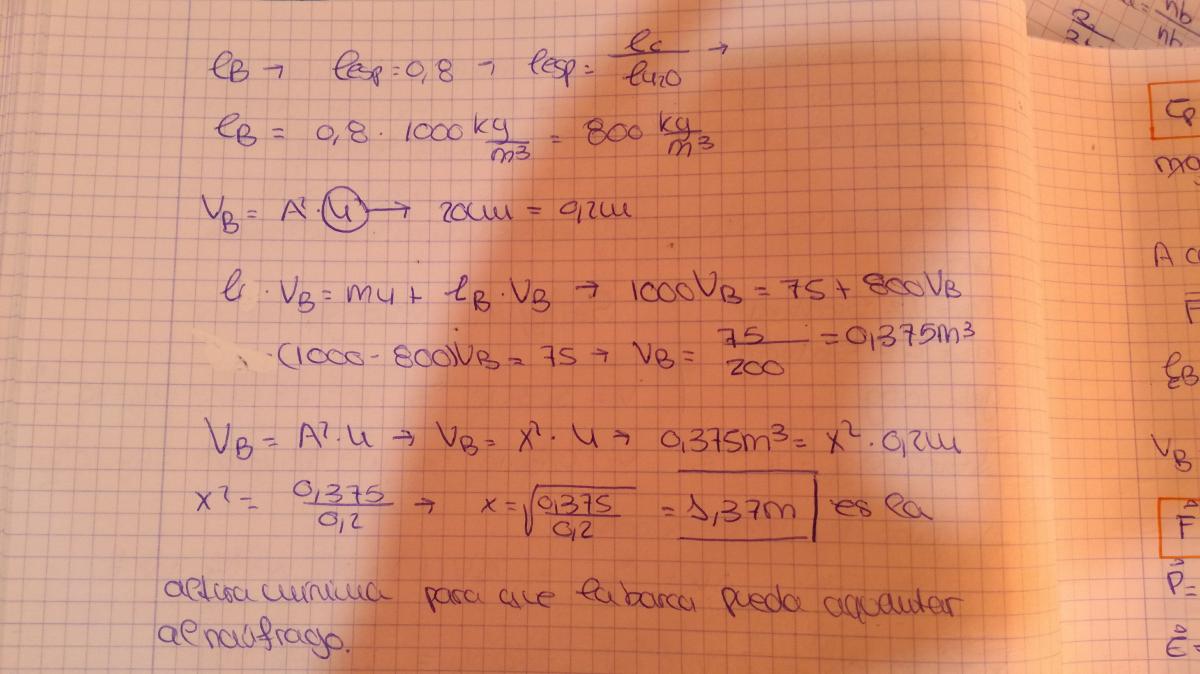 ρB → ρesp = 0,8 → ρesp = ρc / ρH2O →
ρB = 0,8 · 1000 kg/m³ = 800 kg/m³
VB = A² · H → 20cm = 0,2m
ρ · VB = mH + ρB · VB → 1000VB = 75 + 800VB
(1000 - 800)VB = 75 → VB = 75/200 = 0,375m³
VB = A² · H → VB = x² · H → 0,375m³ = x² · 0,2m
x² = 0,375/0,2 → x = √(0,375/0,2) = 1,37m es la
altura mínima para que la barca pueda aguantar
al naúfrago.
A
F
VB
F
P=
E=